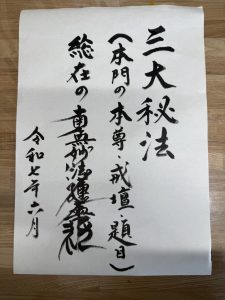 三大秘法
（本門の本尊・戒壇・題目）
総在の南無妙法蓮華経
令和七年六月